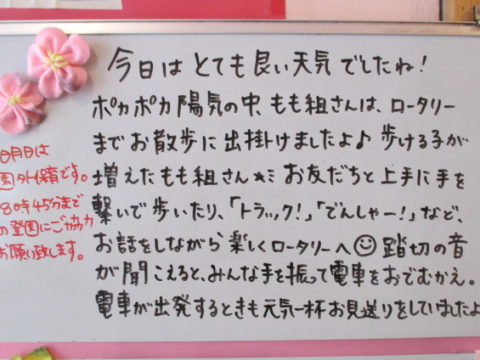 今日はとても良い天気でしたね!
ポカポカ陽気の中、もも組さんは、ロータリー
までお散歩に出掛けましたよ♪歩ける子が
増えたもも組さん★ミお友だちと上手に手を
繋いで歩いたり、「トラック!」「でんしゃー!」など、
お話をしながら楽しくロータリーへ☺踏切の音
が聞こえると、みんな手を振って電車をおでむかえ。
電車が出発するときも元気一杯お見送りをしていましたよ
月日は
園外保育です。
8時45分まで
の登園にご協力
お願い致します。